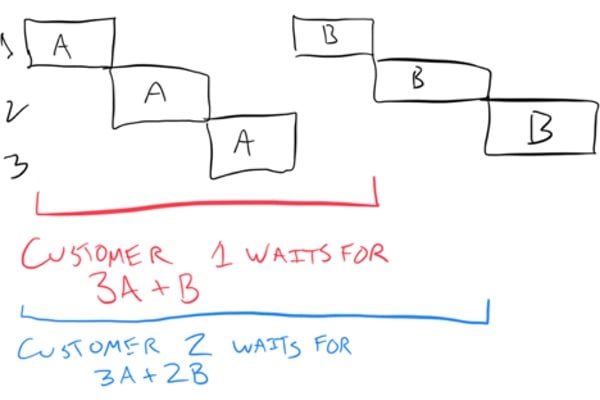 1 A B
A B
2
A B
3
CUSTOMER 1 WAITS FOR
3A+B
CUSTOMER 2 WAITS FOR
3A+2B